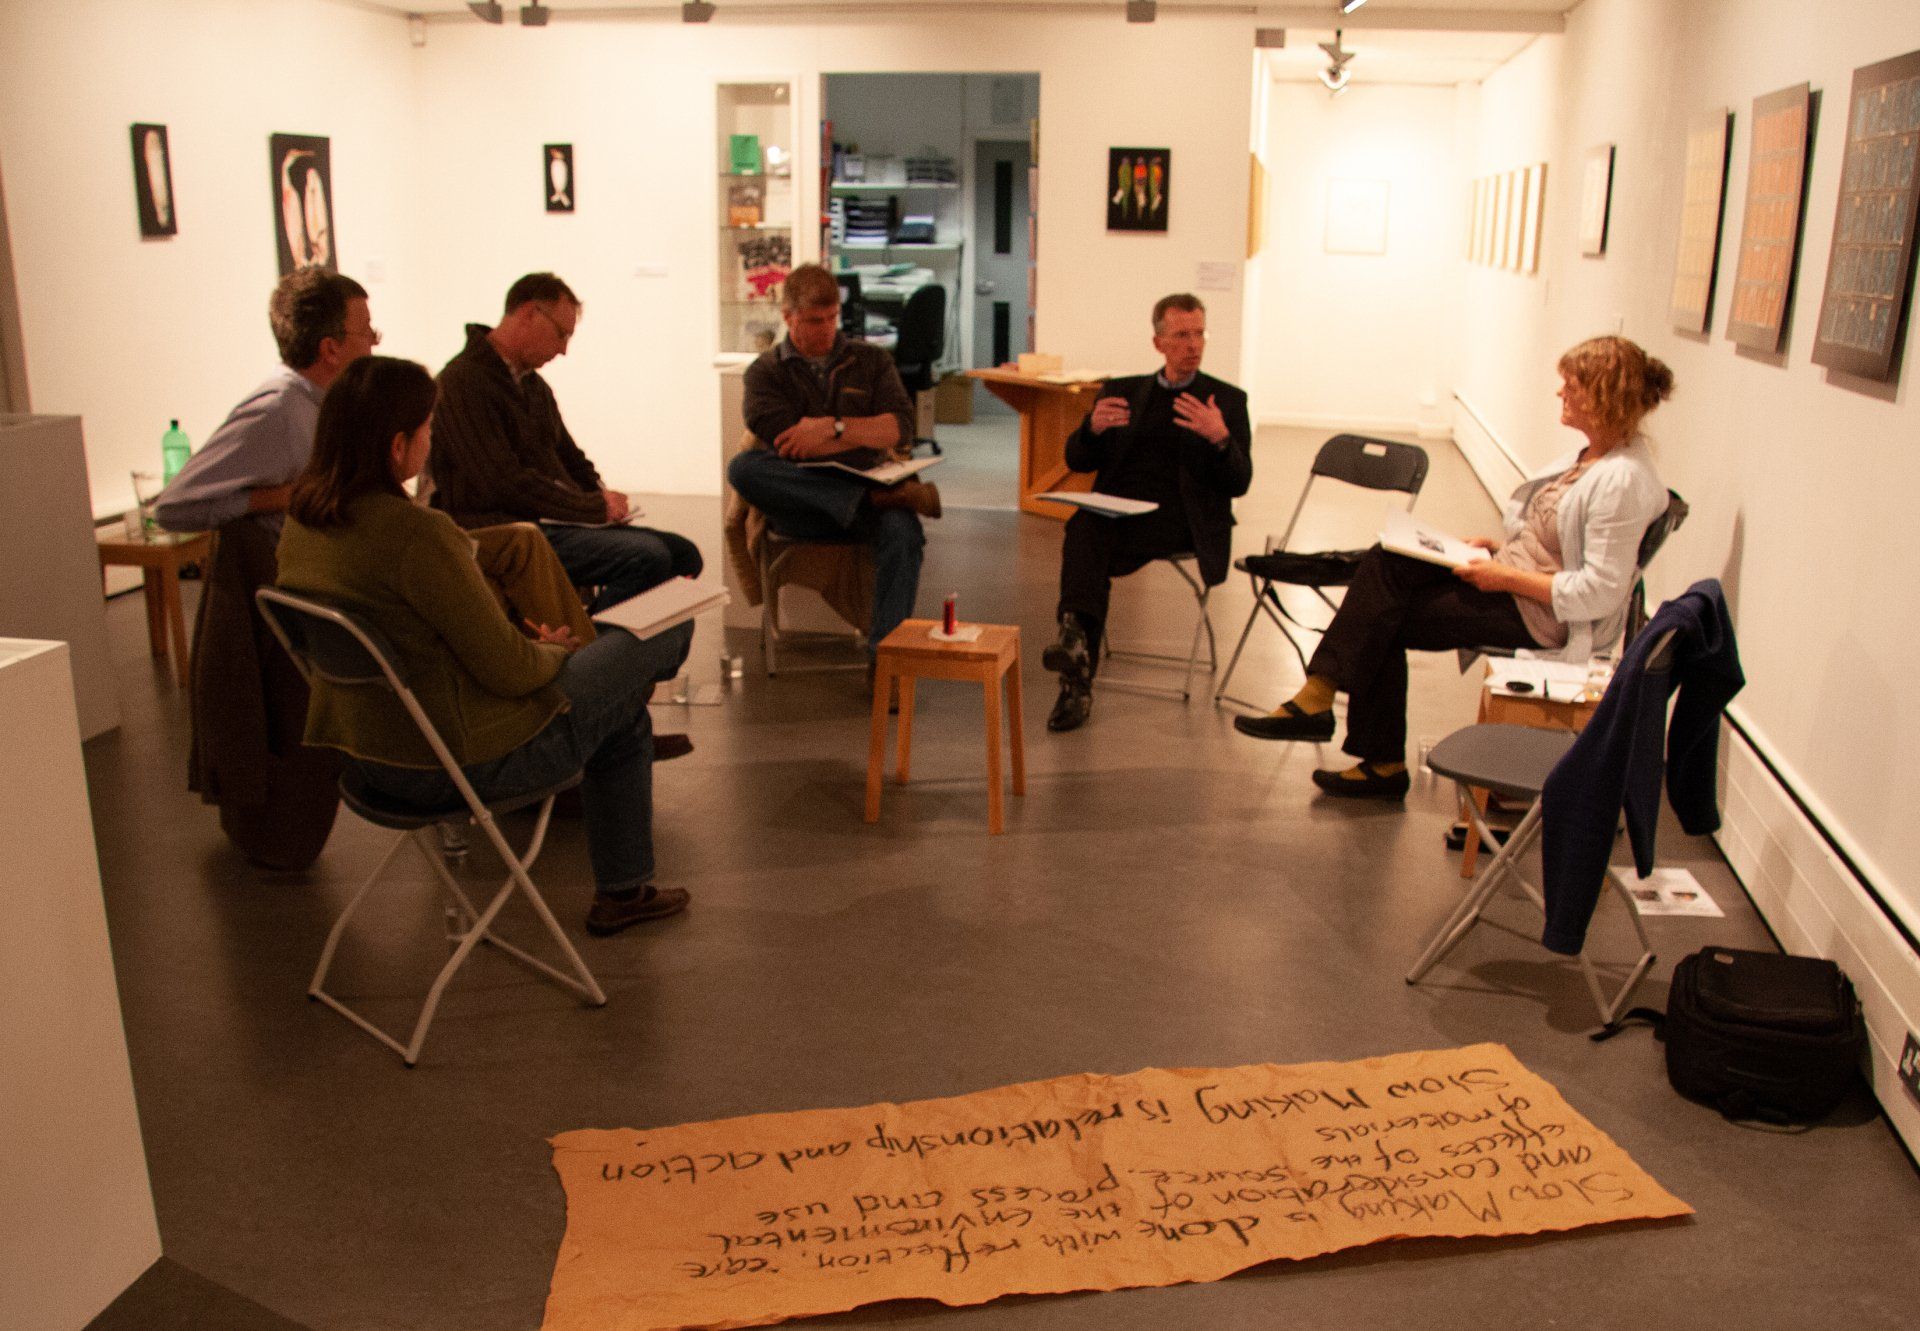 Slow Making is done with reflection, care
and consideration of the environmental
effects of the source, process and use
of materials
Slow Making is relationship and action.